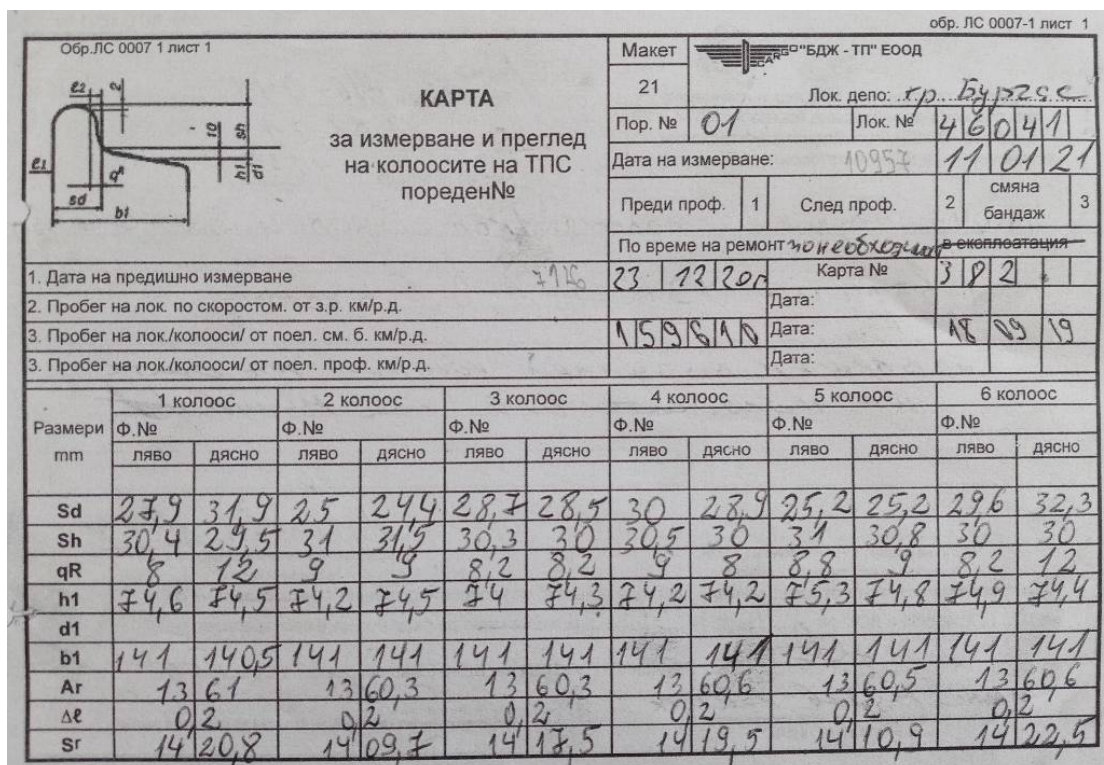 обр. ЛС 0007-1 лист 1
Обр.ЛС 0007 1 лист 1
КАРТА
за измерване и преглед
на колоосите на ТПС
пореден№
Макет
21
CARGO "БДЖ - ТП" ЕООД
Лок. депо: гр. Бургас
Пор. № 01 Лок. № 46041
Дата на измерване: 10957 11 01 21
Преди проф. 1 След проф. 2 смяна бандаж 3
По време на ремонт по необходим в експлоатация
1. Дата на предишно измерване 23 12 20г Карта № 382
2. Пробег на лок. по скоростом. от з.р. км/р.д. Дата:
3. Пробег на лок./колооси/ от поел. см. б. км/р.д. 159610 Дата: 18 09 19
3. Пробег на лок./колооси/ от поел. проф. км/р.д. Дата:
Размери mm 1 колоос 2 колоос 3 колоос 4 колоос 5 колоос 6 колоос
Ф.№ Ф.№ Ф.№ Ф.№ Ф.№ Ф.№
ляво дясно ляво дясно ляво дясно ляво дясно ляво дясно ляво дясно
Sd 27,9 31,9 25 24,4 28,7 28,5 30 28,9 25,2 25,2 29,6 32,3
Sh 30,4 29,5 31 31,5 30,3 30 30,5 30 31 30,8 30 30
qR 8 12 9 9 8,2 8,2 9 8 8,8 9 8,2 12
h1 74,6 74,5 74,2 74,5 74 74,3 74,2 74,2 75,3 74,8 74,9 74,4
d1
b1 141 140,5 141 141 141 141 141 141 141 141 141 141
Ar 1361 1360,3 1360,3 1360,6 1360,5 1360,6
Δℓ 0,2 0,2 0,2 0,2 0,2 0,2
Sr 1420,8 1409,7 1417,5 1419,5 1410,9 1422,5